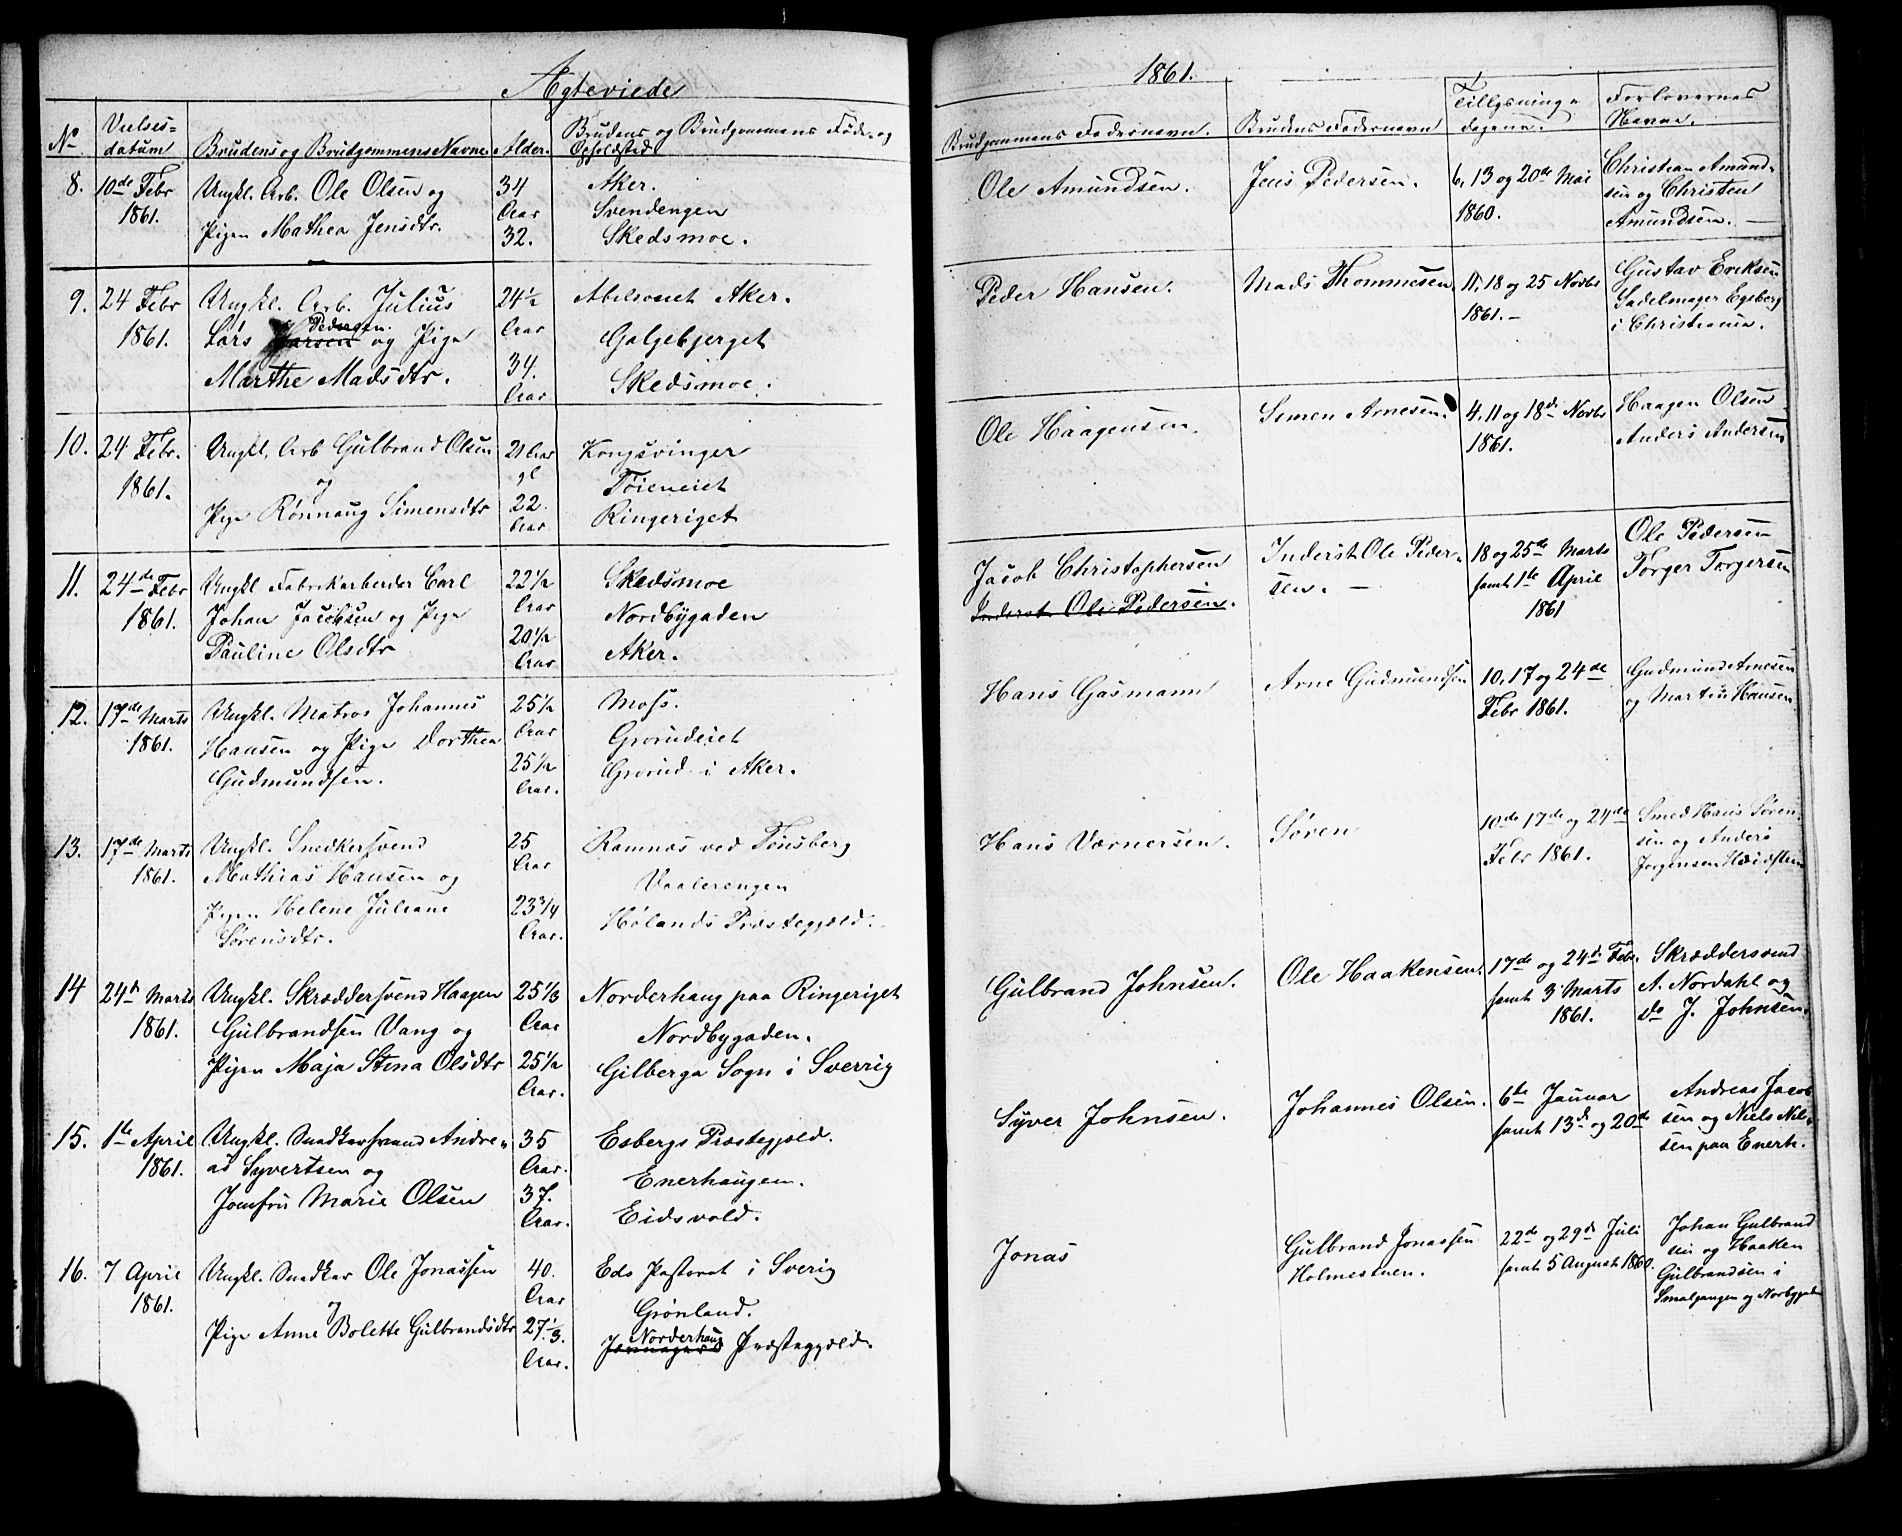 Ægteviede
1861.
No
Vielses-
datum
Brudens og Brudgommens Navne.
Alder.
Brudens og Brudgommens Føde- og
Opholdsted
Brudgommens Fadernavn.
Brudens Fadernavn
Tillysnings-
dagene.
Forlovernes
Navne.
8.
10de Febr
1861.
Ungkl. Arb. Ole Olsen og
Pigen Mathea Jensdtr.
34
Aar
32.
Aker.
Svendengen
Skedsmoe.
Ole Amundsen.
Jens Pedersen.
6, 13 og 20de Mai
1860.
Christian Amund-
sen og Christen
Amundsen. —
9.
24 Febr
1861.
Ungkl. Arb. Julius
Pedersen.
Lars Larsen og Pige
Marthe Madsdtr.
24½
Aar
34.
Aar
Abelsoeiet Aker.
Galgebjerget
Skedsmoe.
Peder Hansen.
Mads Thommesen.
11, 18 og 25 Novbr
1861. —
Gustav Eriksen
Sadelmager Egeberg
i Christiania.
10.
24 Febr.
1861.
Ungkl. Arb Gulbrand Olsen
og
Pige Rønnaug Simensdtr
21 Aar
gl
22.
Aar
Kongsvinger
Tøieneiet
Ringeriget
Ole Haagensen.
Simen Arnesen.
4, 11 og 18de Novbr
1861.
Haagen Olsen
Anders Andersen
11.
24de Febr
1861.
Ungkl Fabrikarbeider Carl
Johan Jacobsen og Pige
Pauline Olsdtr
22½
Aar
20½
Aar
Skedsmoe
Nordbygaden
Aker.
Jacob Christophersen
Inderst Ole Pedersen.
Inderst Ole Peder-
sen. —
18 og 25de Marts
samt 1te April
1861
Ole Pedersen
Torger Torgersen
12.
17de Marts
1861.
Ungkl. Matros Johannes
Hansen og Pige Dorthea
Gudmundsen.
25½
Aar
25½
Aar.
Moss.
Grorudeiet
Grorud i Aker.
Hans Gasmann
Arne Gudmundsen
10, 17 og 24de
Febr 1861.
Gudmund Arnesen
og Martin Hansen
13.
17de Marts
1861.
Ungkl. Snedkersvend
Mathias Hansen og
Pigen Helene Juliane
Sørensdtr.
25
Aar
23¾
Aar.
Ramnæs ved Tønsberg
Vaalerengen
Hølands Præstegjeld.
Hans Værnersen.
Søren
10de 17de og 24de
Febr 1861.
Smed Hans Søren-
sen og Anders
Jørgensen
14
24de Marts
1861.
Ungkl. Skræddersvend Haagen
Gulbrandsen Vang og
Pigen Maja Stina Olsdtr
25⅓
Aar
25½
Aar.
Norderhaug paa Ringeriget
Nordbygaden.
Gilberga Sogn i Sverrig
Gulbrand Johnsen.
Ole Haakensen.
17de og 24de Febr.
samt 3 Marts
1861.
Skræddersvend
A. Nordahl og
do J. Johnsen.
15.
1te April
1861.
Ungkl. Snedkersvend Andre-
as Syvertsen og
Jomfru Marie Olsen
35
Aar.
37.
Aar.
Esbergs Præstegjeld.
Enerhaugen.
Eidsvold.
Syver Johnsen.
Johannes Olsen.
6te Januar
samt 13de og 20de
Andreas Jacob-
sen og Niels Nil-
sen paa Enerh.
16.
7 April
1861.
Ungkl. Snedker Ole Jonassen
og
Pige Anne Bolette Gulbrandsdtr
40.
Aar
27⅓.
Aar.
Eds Pastorat i Sverig
Grønland.
Norderhaug
Præstegjeld.
Jonas
Gulbrand Jonassen
Holmestuen.
22de og 29de Juli
samt 5 August 1860.
Johan Gulbrand-
sen og Haaken
Gulbrandsen i
Smalgangen og Norbygaden